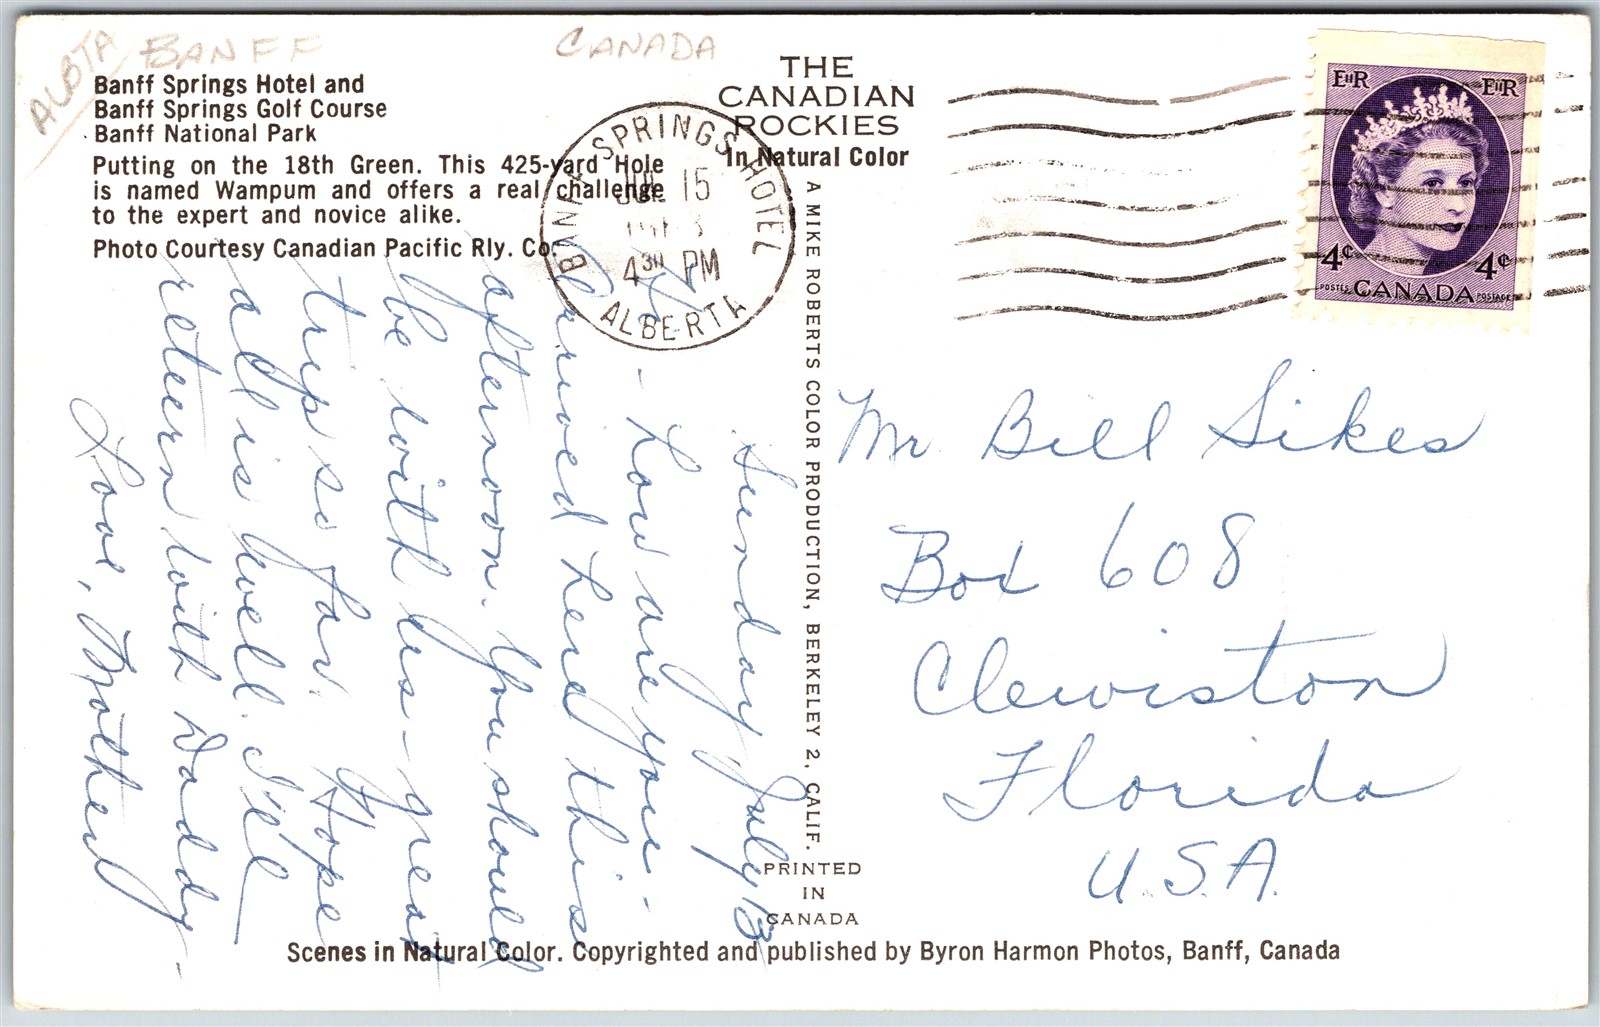 ALBTA BANFF CANADA
Banff Springs Hotel and
Banff Springs Golf Course
Banff National Park
Putting on the 18th Green. This 425-yard Hole
is named Wampum and offers a real challenge
to the expert and novice alike.
Photo Courtesy Canadian Pacific Rly. Co.
THE
CANADIAN
ROCKIES
In Natural Color
BANFF SPRINGS HOTEL
JUL 15
4 30 PM
ALBERTA
EIIR EIIR
4¢ 4¢
POSTES CANADA POSTAGE
Sunday, July 13
- How are you -
Arrived here this
afternoon. You should
be with us - great
trip so far. Hope
all is well. I'll
return with Daddy -
Love, Mother
A MIKE ROBERTS COLOR PRODUCTION, BERKELEY 2, CALIF.
Mr Bill Sikes
Box 608
Clewiston
Florida
U.S.A.
PRINTED
IN
CANADA
Scenes in Natural Color. Copyrighted and published by Byron Harmon Photos, Banff, Canada